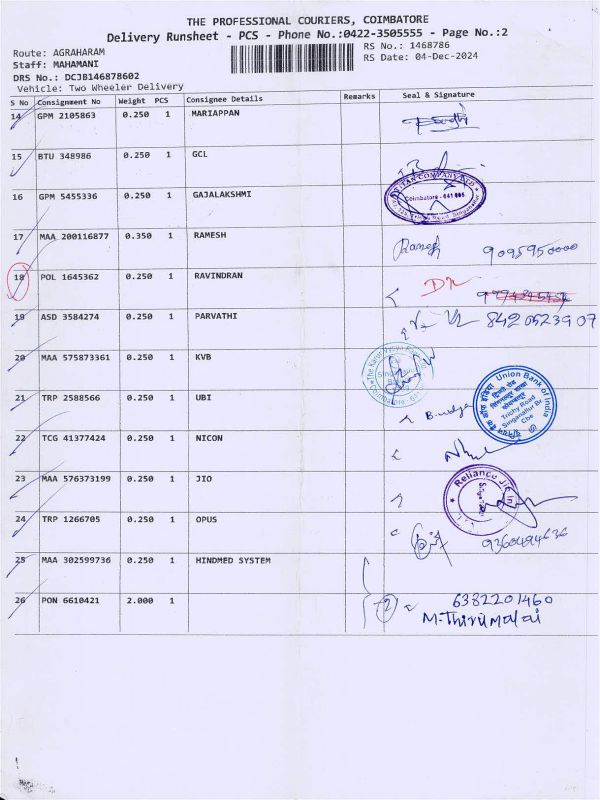 THE PROFESSIONAL COURIERS, COIMBATORE
Delivery Runsheet - PCS - Phone No.:0422-3505555 - Page No.:2
Route: AGRAHARAM RS No.: 1468786
Staff: MAHAMANI RS Date: 04-Dec-2024
DRS No.: DCJB146878602
Vehicle: Two Wheeler Delivery
S No Consignment No Weight PCS Consignee Details Remarks Seal & Signature
14 GPM 2105863 0.250 1 MARIAPPAN
15 BTU 348986 0.250 1 GCL
16 GPM 5455336 0.250 1 GAJALAKSHMI
Coimbatore - 641 005
17 MAA 200116877 0.350 1 RAMESH Ramesh 9095950000
18 POL 1645362 0.250 1 RAVINDRAN
19 ASD 3584274 0.250 1 PARVATHI 8420523907
20 MAA 575873361 0.250 1 KVB
21 TRP 2588566 0.250 1 UBI
Union Bank of India
Trichy Road
Singanallur Br
Cbe
22 TCG 41377424 0.250 1 NICON
23 MAA 576373199 0.250 1 JIO
Reliance Ji
24 TRP 1266705 0.250 1 OPUS 9360494636
25 MAA 302599736 0.250 1 HINDMED SYSTEM
26 PON 6610421 2.000 1 2 6382201460
M-Thirumalai